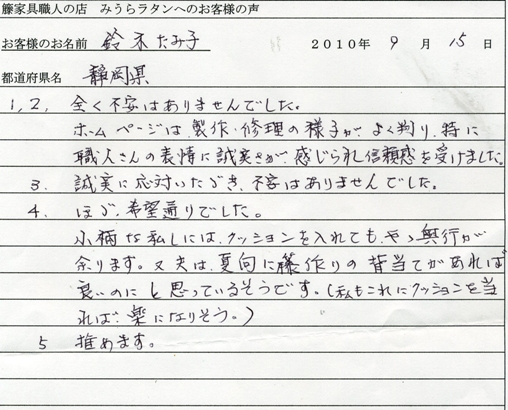 籐家具職人の店 みうらラタンへのお客様の声
お客様のお名前 鈴木たみ子 2010年 9月 15日
都道府県名 静岡県
1,2, 全く不安はありませんでした。
ホームページは、製作・修理の様子が、よく判り、特に
職人さんの表情に誠実さが、感じられ信頼感を受けました。
3. 誠実に応対いただき、不安はありませんでした。
4. ほゞ、希望通りでした。
小柄な私しには、クッションを入れても、やゝ奥行が
余ります。又夫は、夏向に籐作りの背当てがあれば
良いのにと思っているそうです。(私もこれにクッションを当
れば、楽になりそう。)
5 推めます。